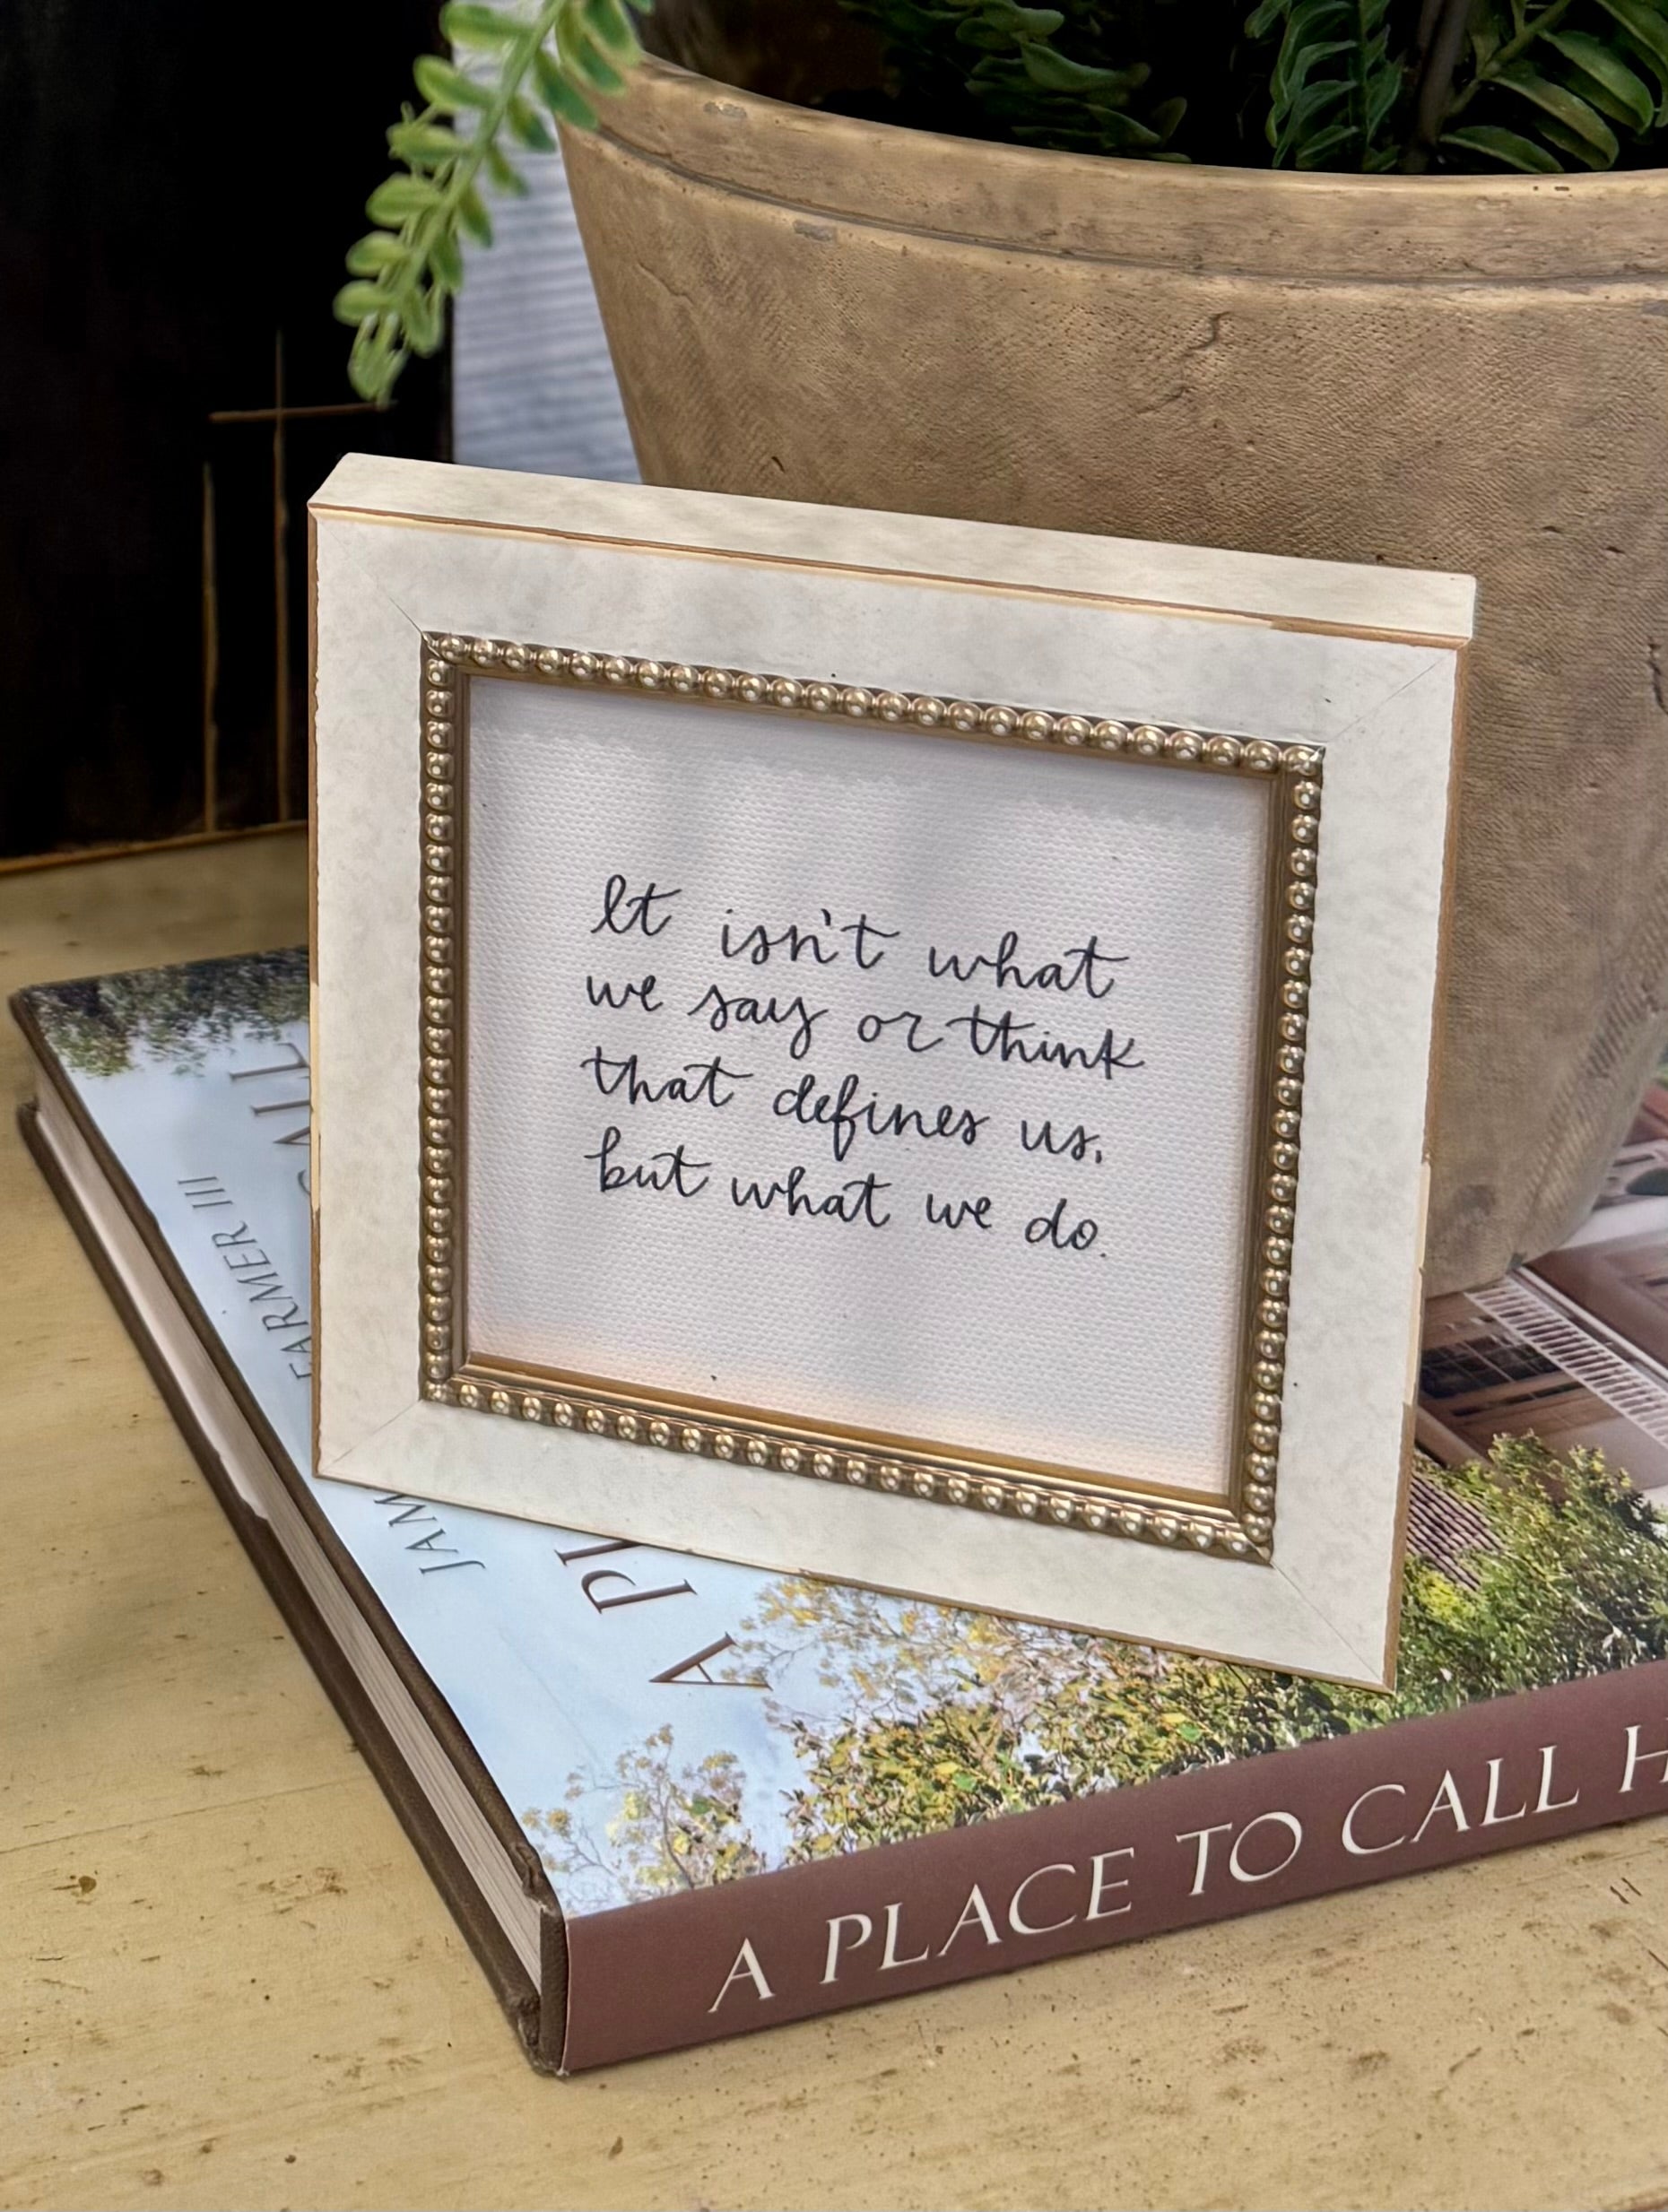 It isn't what
we say or think
that defines us,
but what we do.
FARMER III
JAM
A PL
CALL
A PLACE TO CALL H